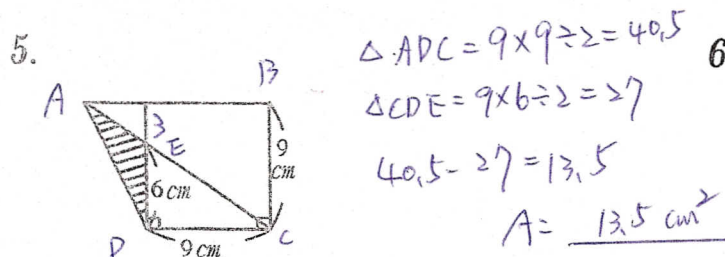 5.
A
B
3
E
6cm
9
cm
D
9cm
C
△ADC = 9×9÷2 = 40.5
△CDE = 9×6÷2 = 27
40.5 - 27 = 13.5
A = 13.5 cm²
6